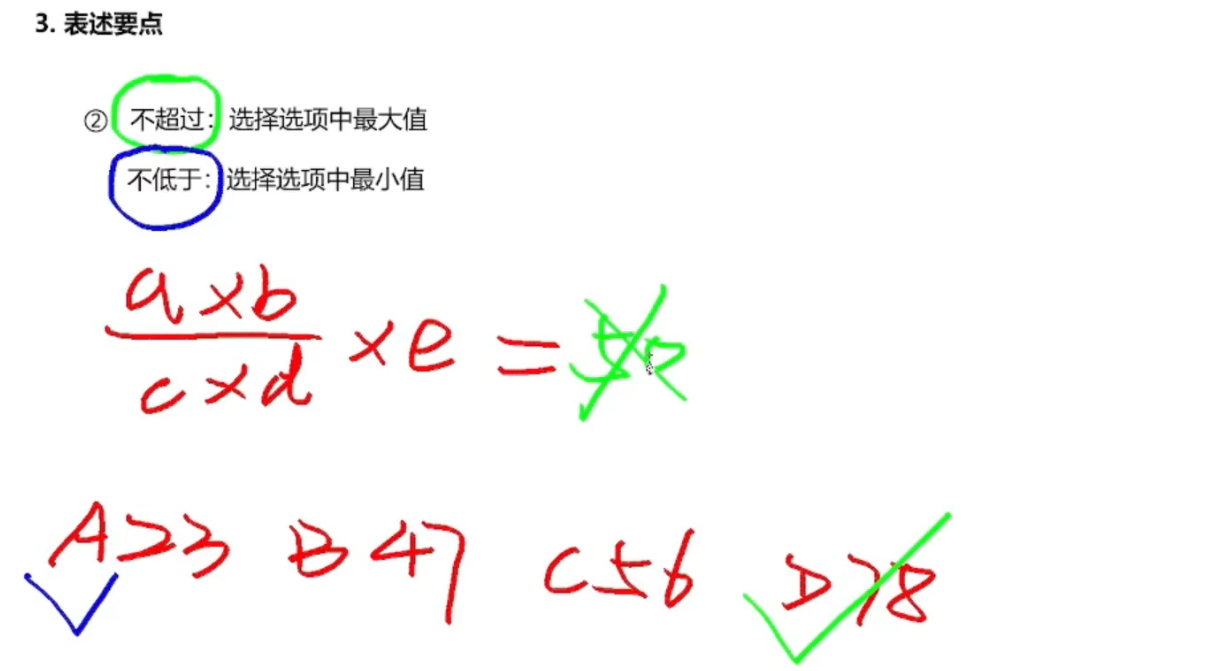 3. 表述要点
② 不超过：选择选项中最大值
不低于：选择选项中最小值
a×b
c×d
×e=
A23 B47 C56 D78